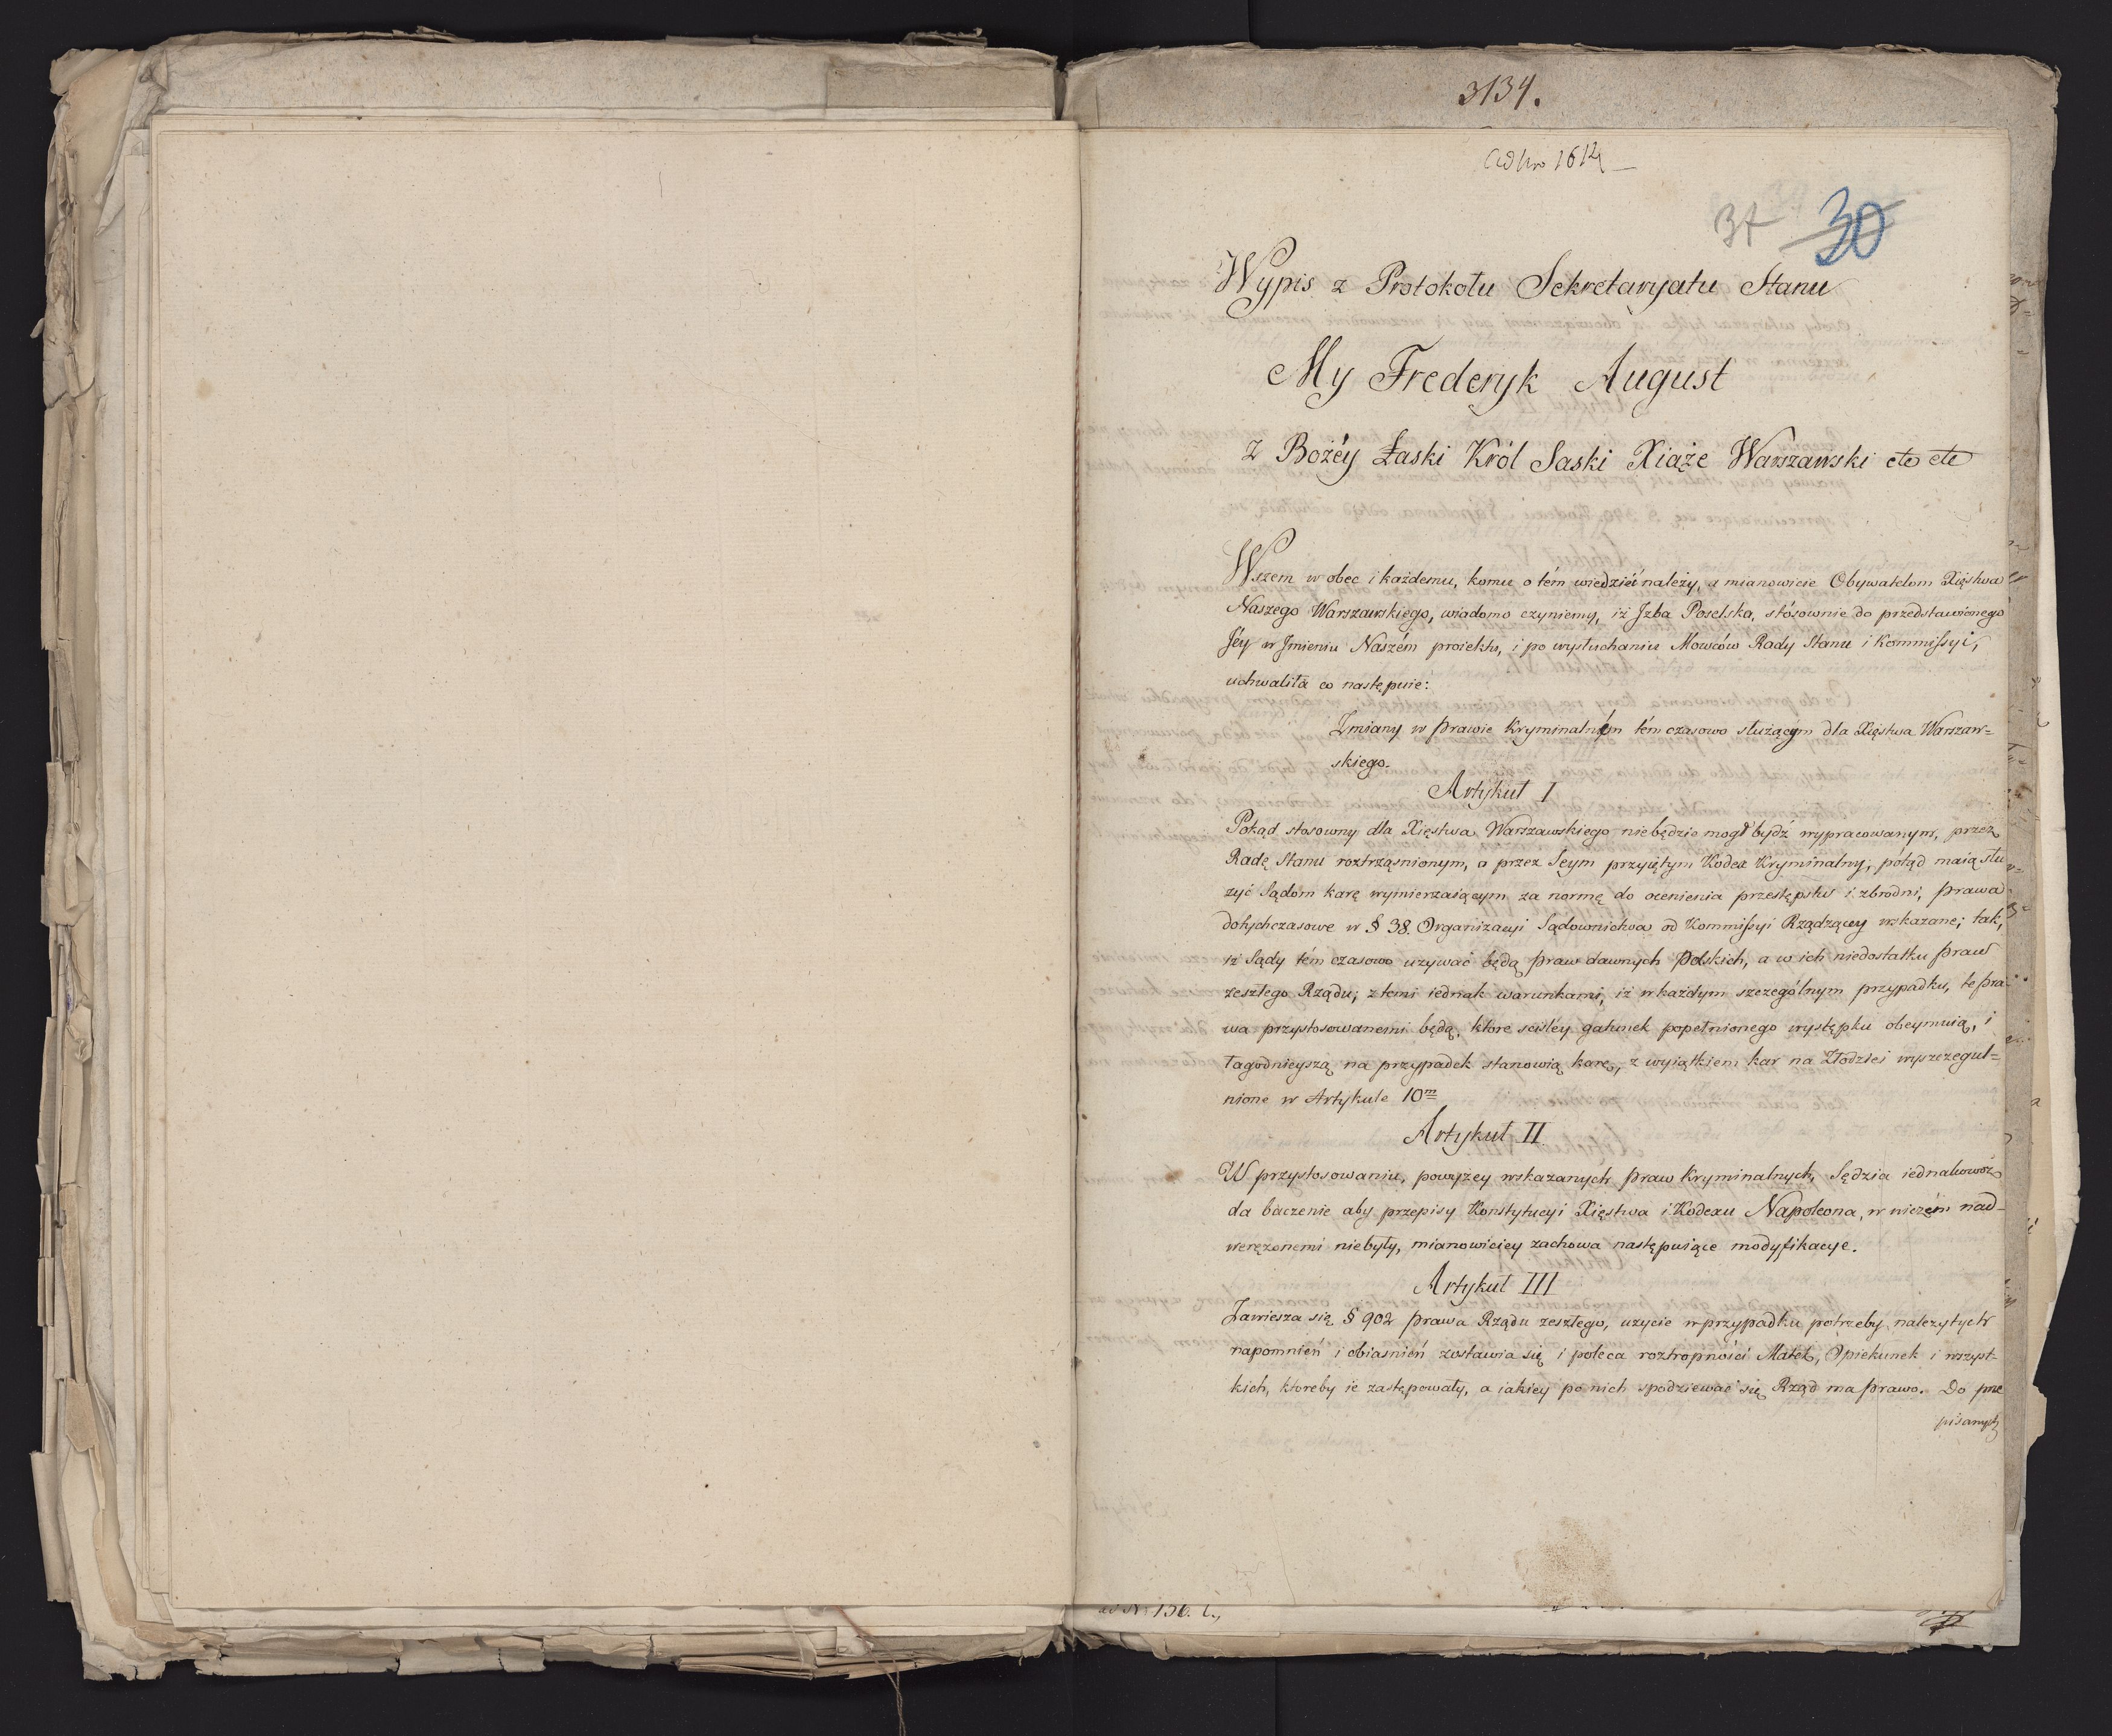 3134.
Ad Nro 1614
37 30
Wypis z Protokołu Sekretaryatu Stanu
My Frederyk August
Z Bożéy Łaski Król Saski Xiąże Warszawski etc etc
Wszem w obec i każdemu, komu o tém wiedzieć należy, a mianowicie Obywatelom Xięstwa
Naszego Warszawskiego, wiadomo czyniemy, iż Jzba Poselska, stósownie do przedstawionego
Jéy w Jmieniu Naszém proiektu, i po wysłuchaniu Mowców Rady Stanu i Kommissyi,
uchwaliła co następuie:
Zmiany w prawie kryminalném tém czasowo służącym dla Xięstwa Warszaw=
skiego.
Artykuł I
Pokąd stosowny dla Xięstwa Warszawskiego niebędzie mogł bydź wypracowanym, przez
Radę Stanu roztrząsnionym, a przez Seym przyiętym Kodex Kryminalny, potąd maią słu
żyć Sądom karę wymierzaiącym za normę do ocenienia przestępstw i zbrodni, prawa
dotychczasowe w § 38. Organizacyi Sądownictwa od Kommissyi Rządzącey wskazane; tak,
iż Sądy tém czasowo uzywać będą praw dawnych Polskich, a w ich niedostatku praw
zeszłego Rządu; z temi iednak warunkami, iż w każdym szczególnym przypadku, te pra-
wa przystosowanemi będą, ktore sciśléy gatunek popełnionego występku obeymuią, i
łagodnieyszą na przypadek stanowią karę, z wyiątkiem kar na Złodziei wyszczegul=
nione w Artykule 10m
Artykuł II
W przystosowaniu, powyżey wskazanych praw kryminalnych, Sędzia iednakowoż
da baczenie aby przepisy Konstytucyi Xięstwa i Kodexu Napoleona, w niczém nad-
werężonemi niebyły, mianowiciey zachowa następuiące modyfikacye.
Artykuł III
Zawiesza się § 902 prawa Rządu zeszłego, uzycie w przypadku potrzeby nalezytych
napomnień i obiasnień zostawia się i poleca roztropności Matek, Opiekunek i wszyst-
kich, ktoreby ie zastępowały, a iakiey po nich spodziewać się Rząd ma prawo. Do prze
pisanych
ad N. 156.